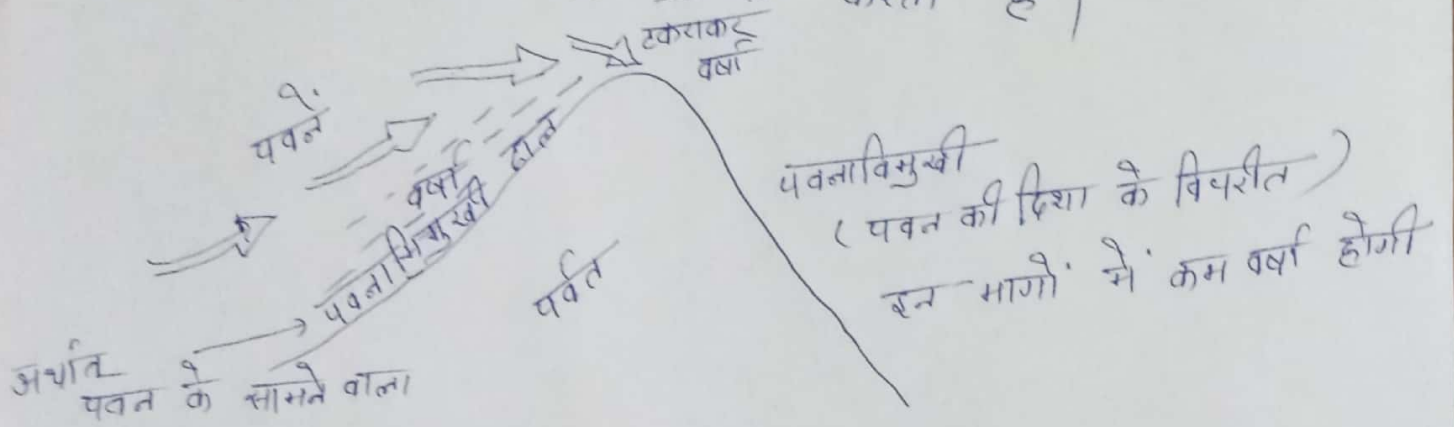 करता है।
टकराकर
वर्षा
पवनें
वर्षा
पवनाभिमुखी ढाल
पर्वत
पवनाविमुखी
(पवन की दिशा के विपरीत)
इन भागों में कम वर्षा होगी
अर्थात
पवन के सामने वाला